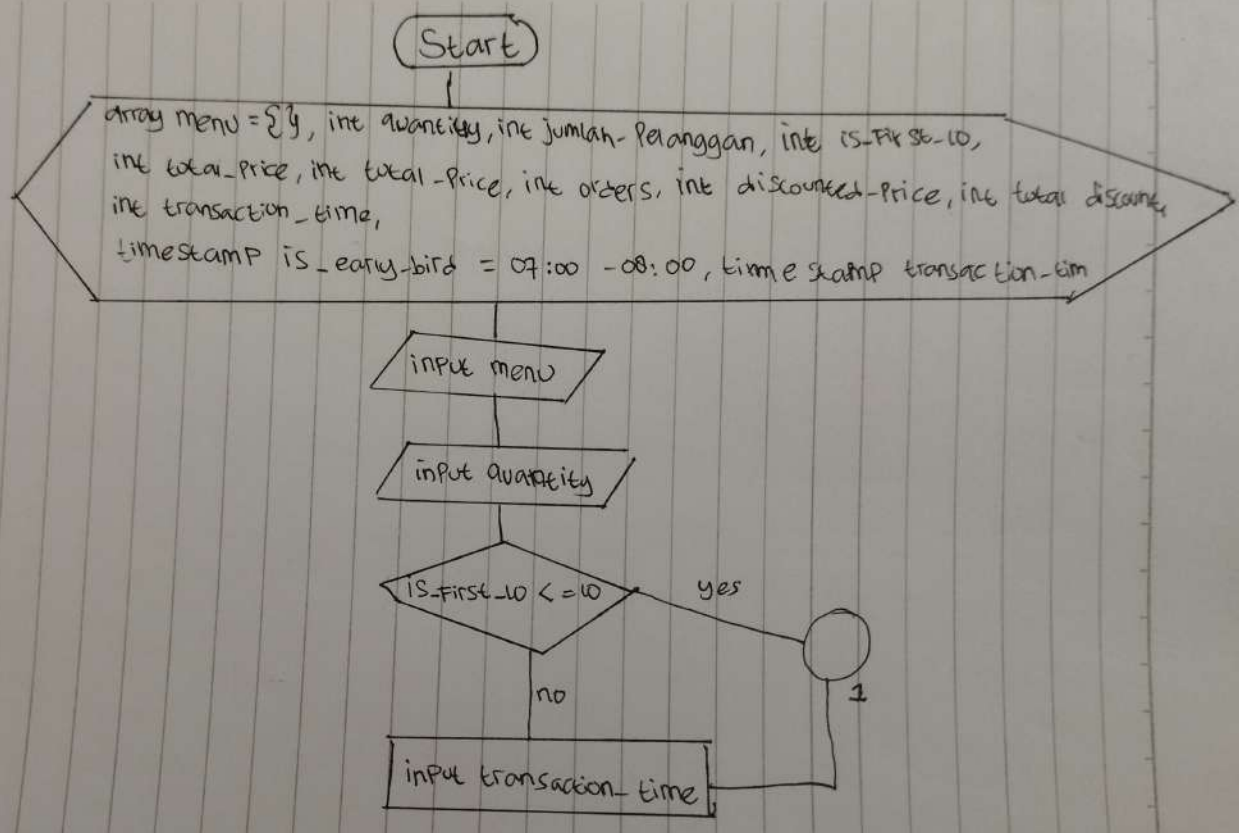 Start
array menu = {}, int quantity, int jumlah-Pelanggan, int is-First-10,
int total-Price, int total-Price, int orders, int discounted-Price, int total discount,
int transaction_time,
timestamp is_early-bird = 07:00 - 08:00, timestamp transaction-tim
input menu
input quantity
is-First-10 <= 10
yes
1
no
input transaction_time